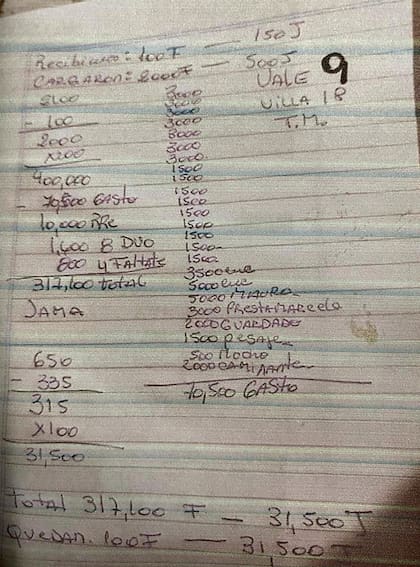 Recibimos: 100 F — 150 J
CARGARON: 2000 F — 500 J
VALE 9
VILLA 18
T.M.
2100
- 100
2000
X200
400,000
- 70,500 GASTO
10,000
1,600 8 DUO
800 4 FAltAts
317,100 TOTAL
JAMA
650
- 335
315
X100
31,500
3000
3000
3000
3000
3000
3000
1500
1500
1500
1500
1500
1500
1500
1500
3500
5000
5000
3000 PRESTAMARCELO
2000 GUARDADO
1500 pesaje
500 Mocho
2000 CAMINANTE
70,500 GASTO
TOTAL 317,100 F — 31,500 J
QUEDAN. 100 F — 31,500 J